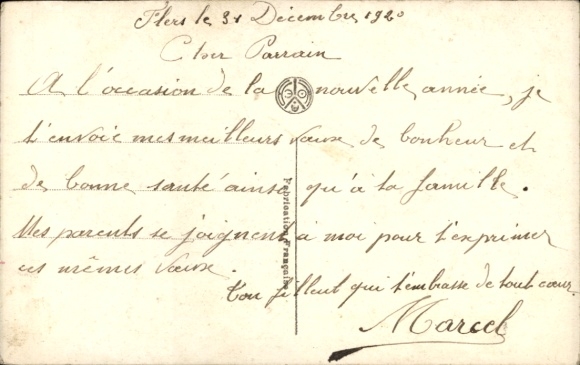 Flers le 31 Décembre 1920
Cher Parrain
A l'occasion de la nouvelle année, je
t'envoie mes meilleurs vœux de bonheur et
de bonne santé ainsi qu'à ta famille.
Mes parents se joignent à moi pour t'exprimer
ces mêmes vœux.
Ton filleul qui t'embrasse de tout cœur.
Marcel
Fabrication Française